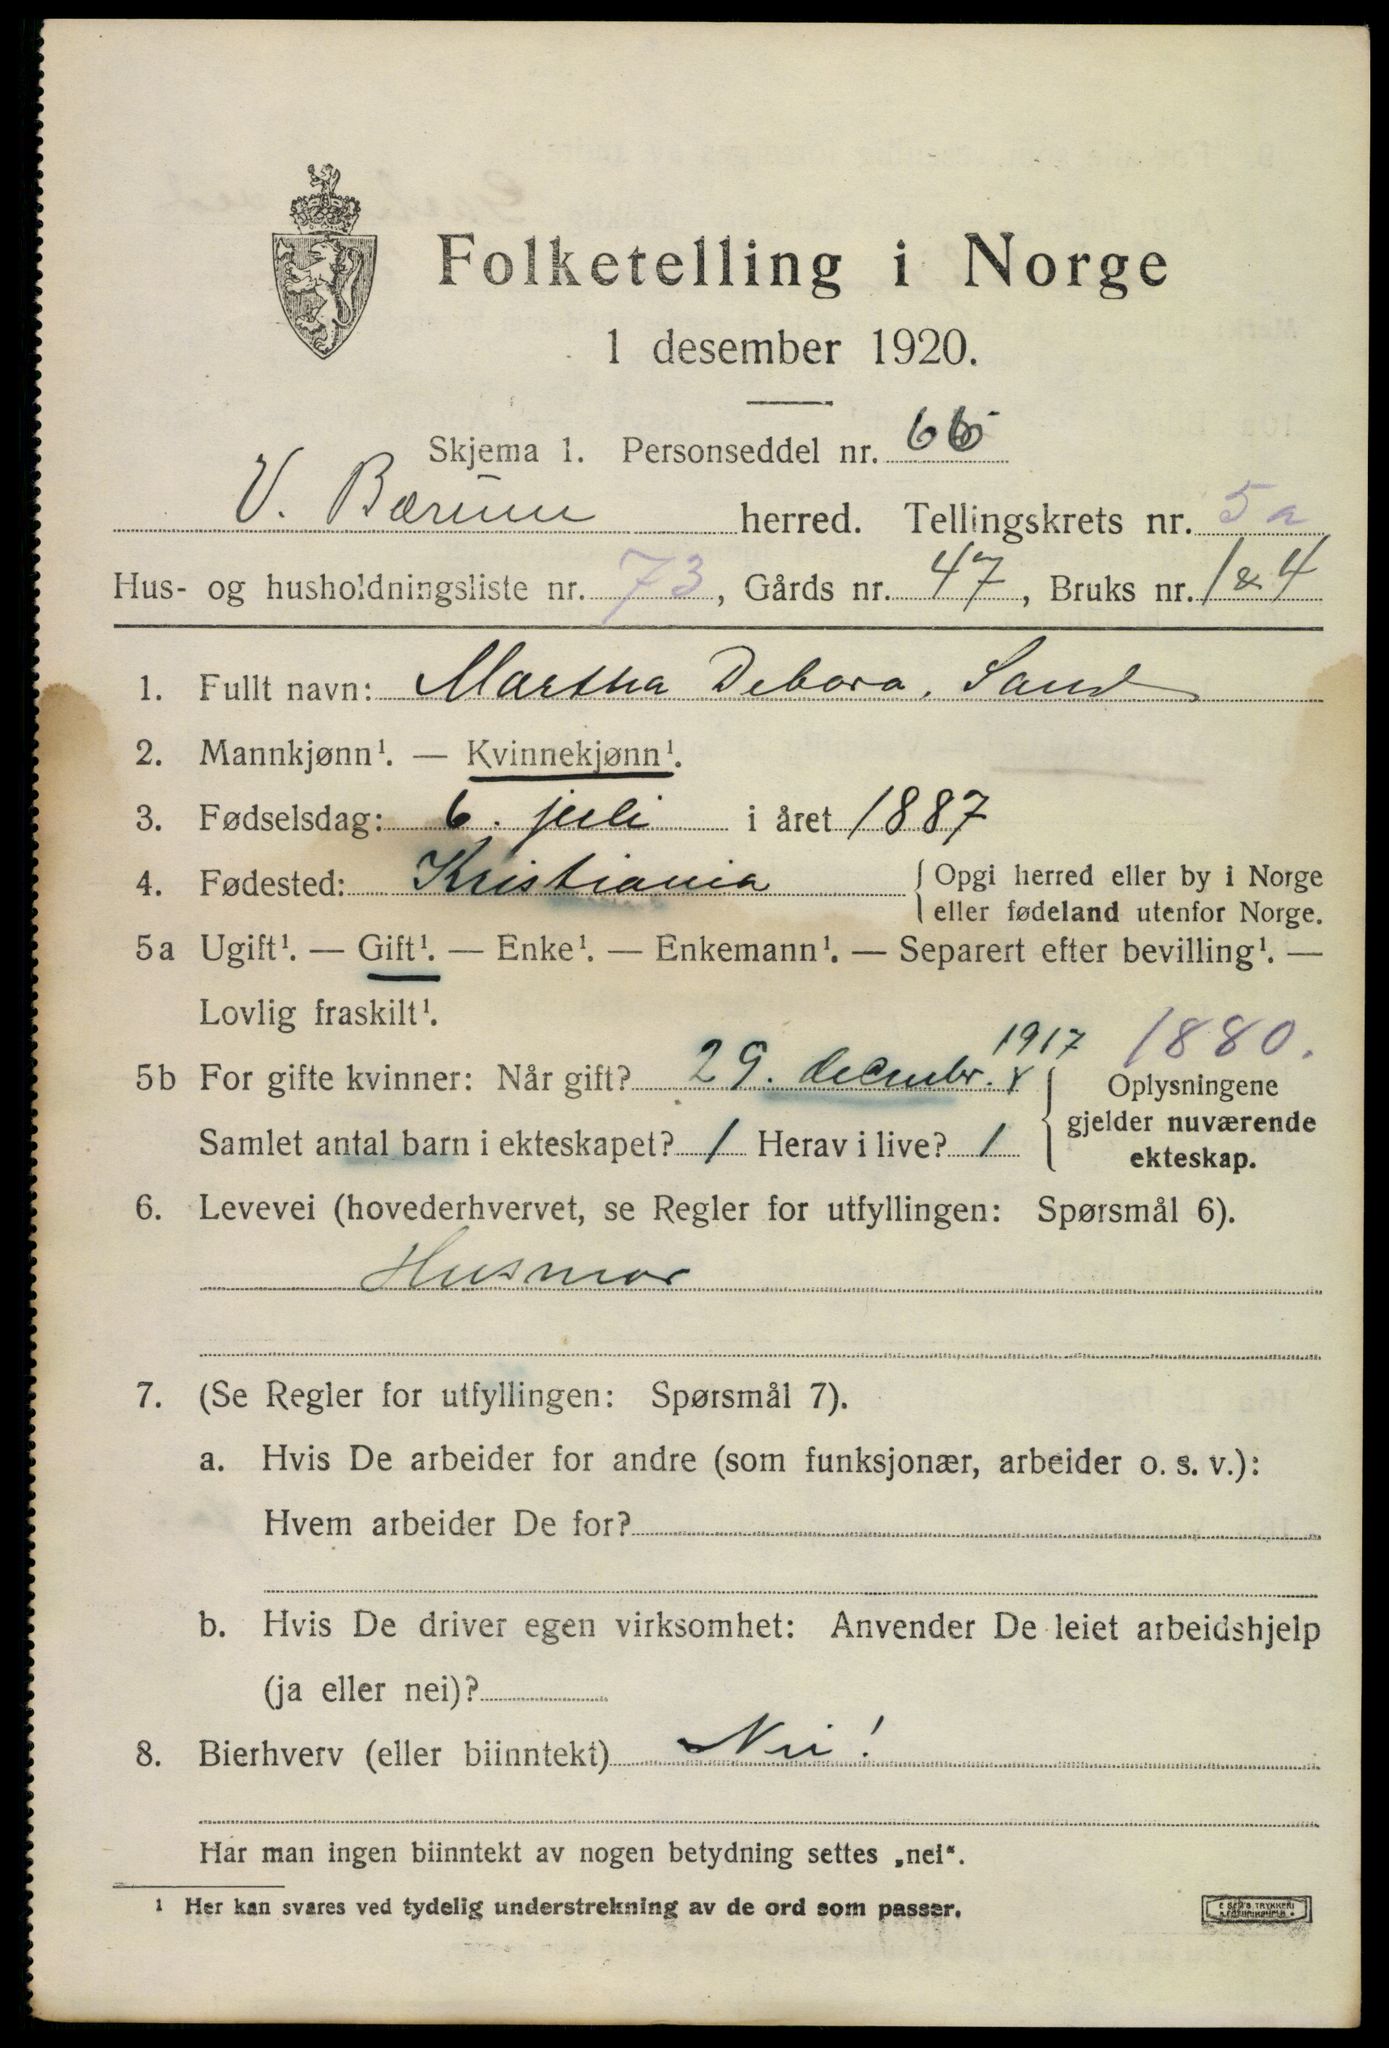 Folketelling i Norge
1 desember 1920.
Skjema 1. Personseddel nr. 66
V. Bærum herred. Tellingskrets nr. 5a
Hus- og husholdningsliste nr. 73, Gårds nr. 47, Bruks nr. 1 & 4
1. Fullt navn: Martha Debora. Sand
2. Mannkjønn¹. — Kvinnekjønn¹.
3. Fødselsdag: 6. juli i året 1887
4. Fødested: Kristiania { Opgi herred eller by i Norge
eller fødeland utenfor Norge.
5a Ugift¹. — Gift¹. — Enke¹. — Enkemann¹. — Separert efter bevilling¹. —
Lovlig fraskilt¹.
1917 1880.
5b For gifte kvinner: Når gift? 29. decembr. { Oplysningene
gjelder nuværende
Samlet antal barn i ekteskapet? 1 Herav i live? 1
ekteskap.
6. Levevei (hovederhvervet, se Regler for utfyllingen: Spørsmål 6).
Husmor
7. (Se Regler for utfyllingen: Spørsmål 7).
a. Hvis De arbeider for andre (som funksjonær, arbeider o. s. v.):
Hvem arbeider De for?
b. Hvis De driver egen virksomhet: Anvender De leiet arbeidshjelp
(ja eller nei)?
8. Bierhverv (eller biinntekt) Nei!
Har man ingen biinntekt av nogen betydning settes „nei“.
1 Her kan svares ved tydelig understrekning av de ord som passer.